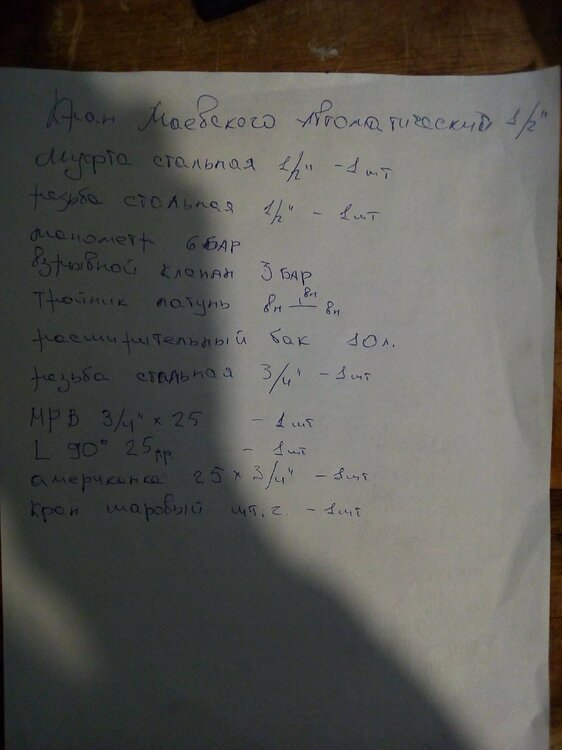 Кран Маевского Автоматический 1/2"
Муфта стальная 1/2" - 1шт
резьба стальная 1/2" - 1шт
манометр 6 БАР
взрывной клапан 3 БАР
тройник латунь вн вн вн
расширительный бак 10 л.
резьба стальная 3/4" - 1шт
МРВ 3/4" x 25 - 1шт
L 90° 25 пр. - 1шт
америчканка 25 x 3/4" - 1шт
кран шаровый шт. г. - 1шт